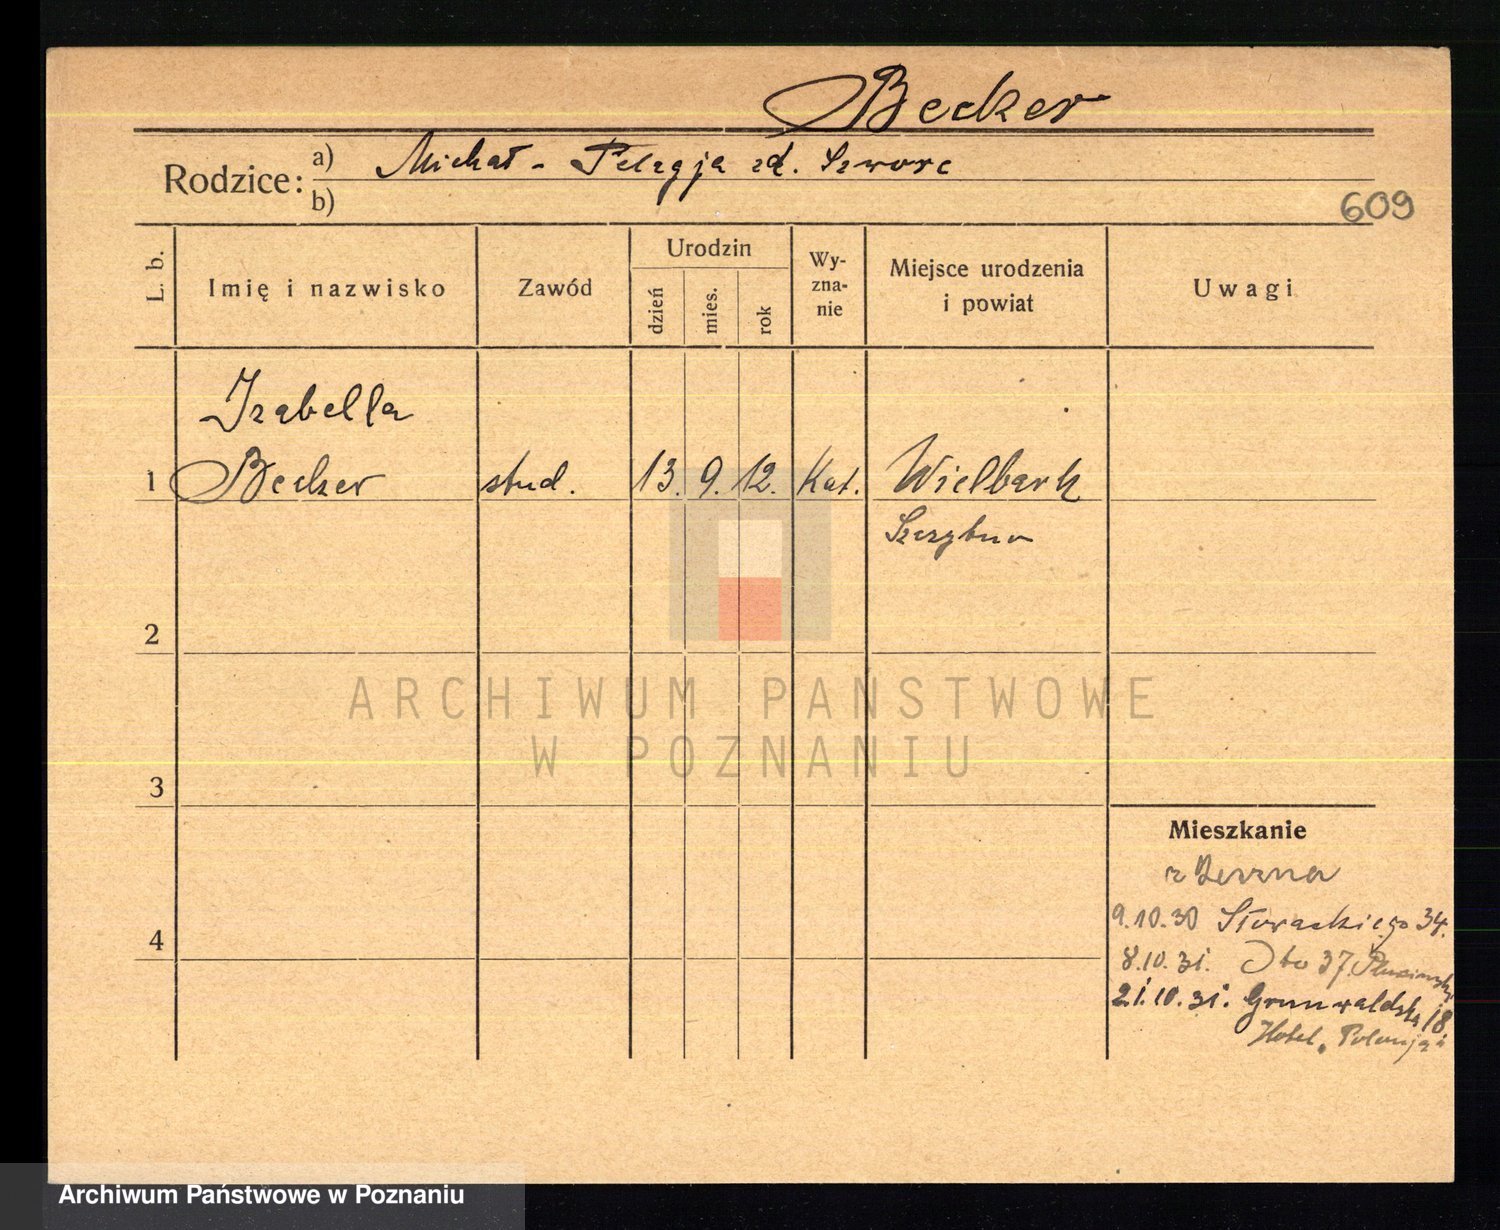 Becker
Rodzice: a) Michał - Pelagja zd. Szworc
b)
609
L. b.
Imię i nazwisko
Zawód
Urodzin
dzień
mies.
rok
Wy-
zna-
nie
Miejsce urodzenia
i powiat
Uwagi
Izabella
1 Becker stud. 13. 9. 12. Kat. Wielbark
Szczytno
2
ARCHIWUM PAŃSTWOWE
W POZNANIU
3
Mieszkanie
z
9.10.30 Słowackiego 34.
4
8.10.31. Dto 37.
21.10.31. Grunwaldska 18.
Hotel „Polonja"
Archiwum Państwowe w Poznaniu